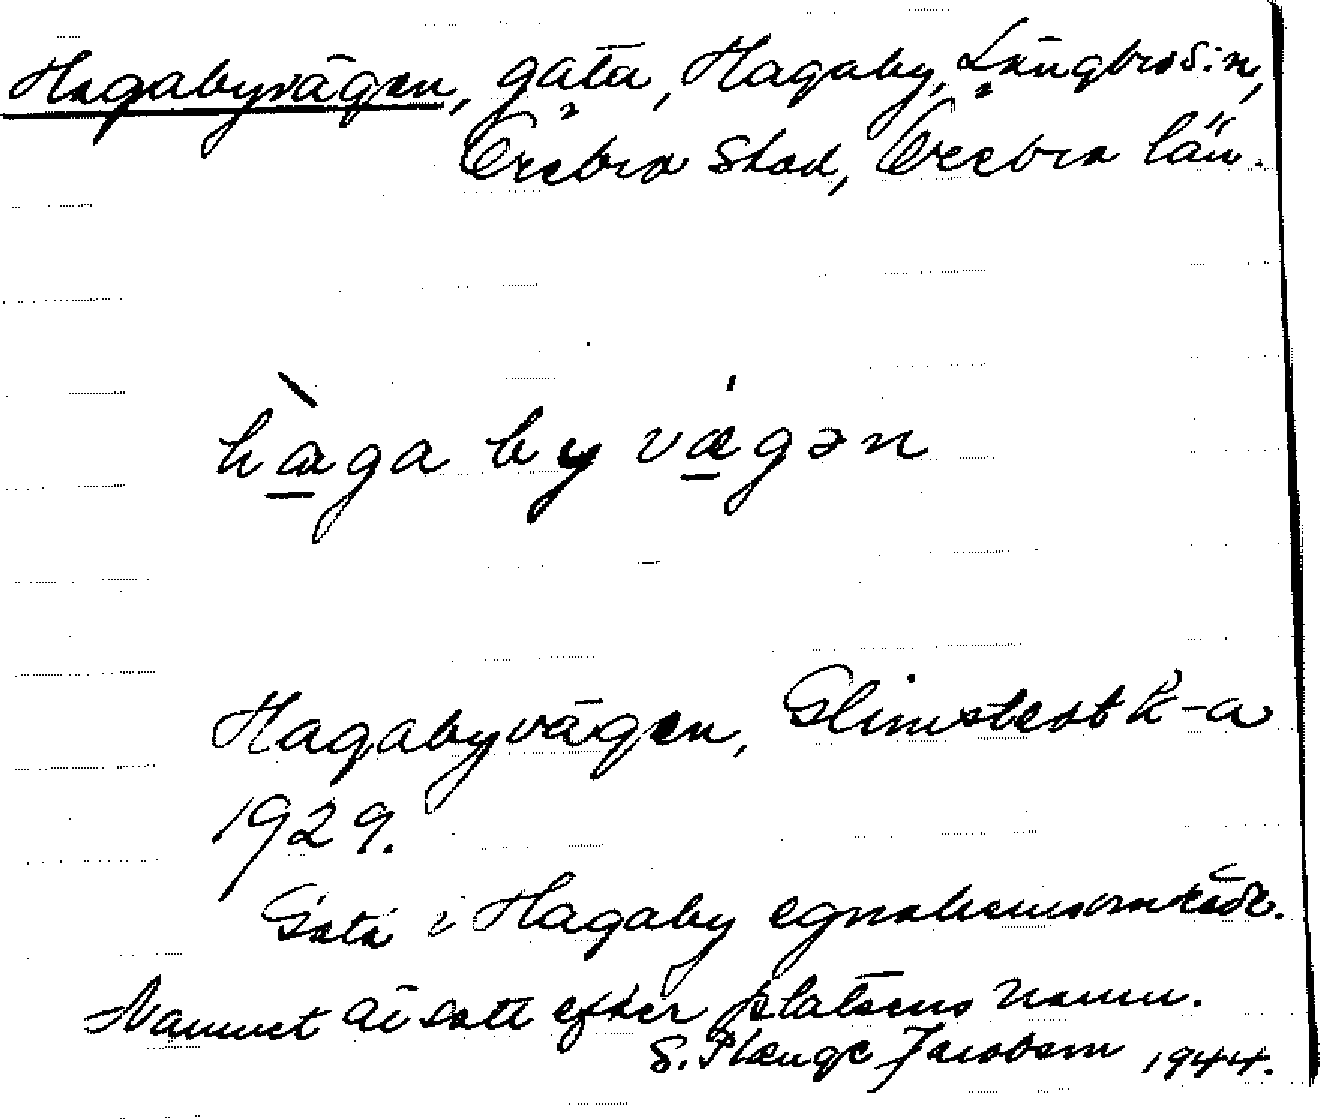 Hagabyvägen, gata, Hagaby, Längbro s:n,
Örebro stad, Örebro län.
hàga by vægən
Hagabyvägen, Glimstedt k-a
1929.
Gata i Hagaby egnahemsområde.
Namnet är satt efter platsens namn.
S. Plenge Jacobson 1944.